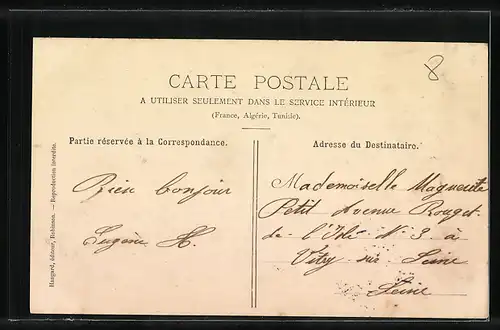 8
CARTE POSTALE
A UTILISER SEULEMENT DANS LE SERVICE INTÉRIEUR
(France, Algérie, Tunisie).
Partie réservée à la Correspondance.
Adresse du Destinataire.
Bien bonjour
Eugène H.
Mademoiselle Maguerite
Petit Avenue Rouget
de l'Isle N° 3 à
Vitry sur Seine
Seine
Maugard, éditeur, Robinson. — Reproduction interdite.